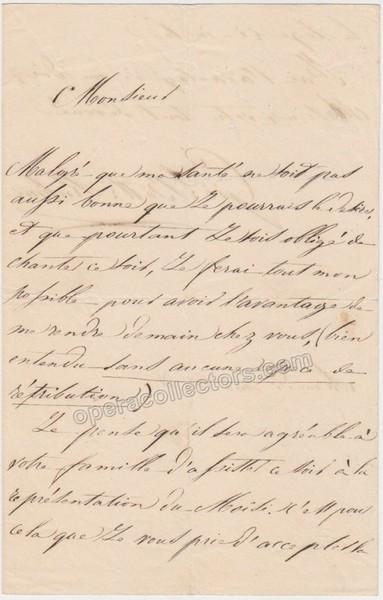 Monsieur
Malgré que ma santé ne soit pas
aussi bonne que je pourrais le desirer,
et que pourtant je sois obligé de
chanter ce soir, je ferai tout mon
possible pour avoir l'avantage de
me rendre demain chez vous, (bien
entendu sans aucune espece de
rétribution.)
operacollectors.com
Je pense qu'il sera agréable à
votre famille d'assister ce soir à la
représentation du Moïse. c'est pour
cela que je vous prie d'accepter la